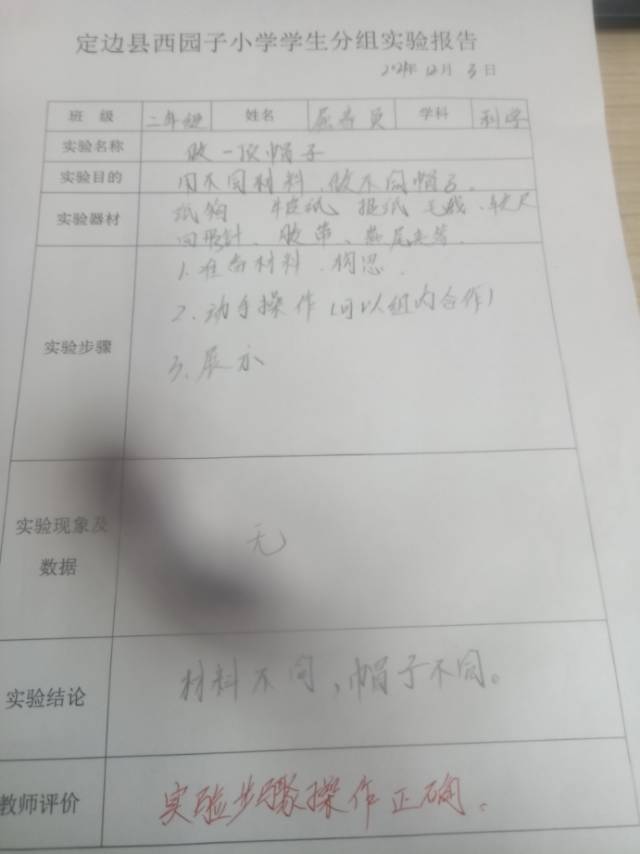 定边县西园子小学学生分组实验报告
12月3日
班 级 二年级 姓名 学科 科学
实验名称 做一顶帽子
实验目的 用不同材料、做不同帽子。
实验器材 纸 卡纸 毛线、软尺
回形针、胶带、燕尾夹等.
实验步骤 1.准备材料、构思.
2.动手操作(可以组内合作)
3.展示
实验现象及
数据 无
实验结论 材料不同,帽子不同。
教师评价 实验步骤操作正确。